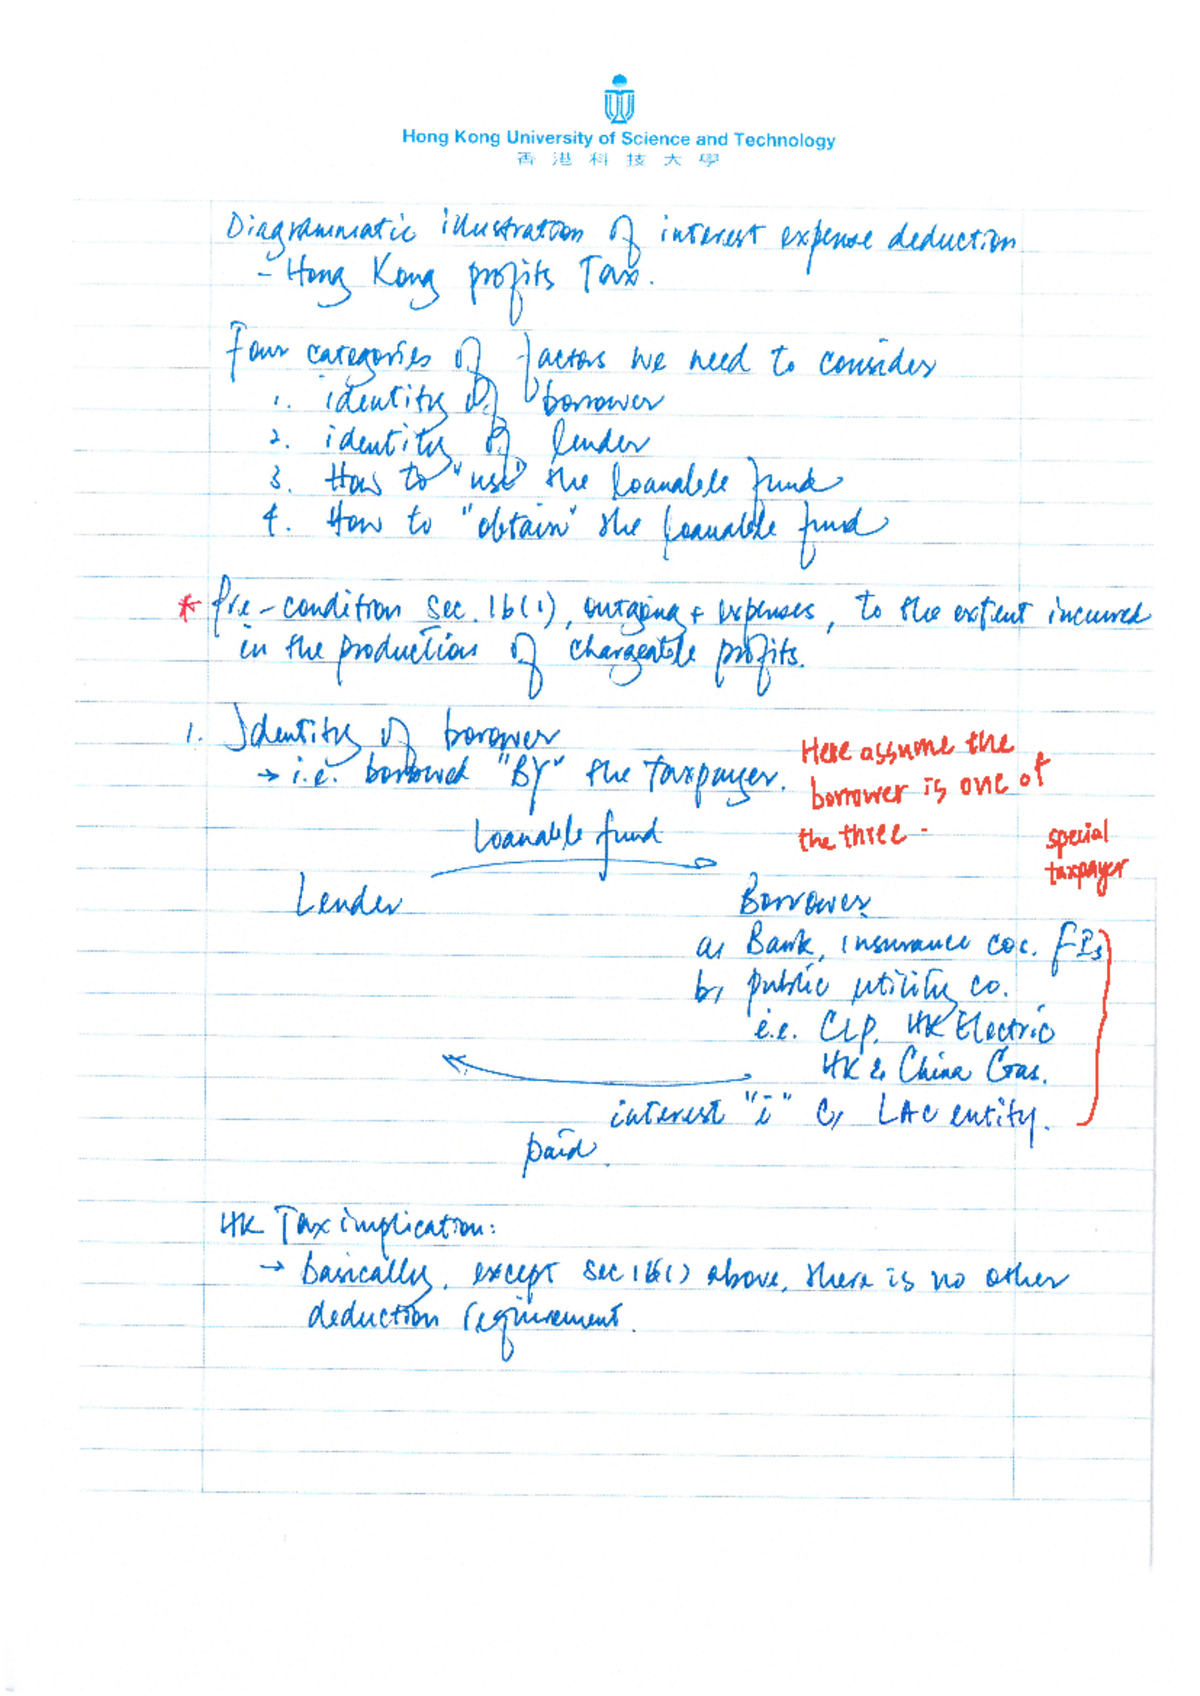 Hong Kong University of Science and Technology
香港科技大學
Diagrammatic illustration of interest expense deduction
- Hong Kong profits Tax.
Four categories of factors we need to consider
1. identity of borrower
2. identity of lender
3. How to "use" the loanable fund
4. How to "obtain" the loanable fund
* Pre-condition Sec. 16(1), outgoing + expenses, to the extent incurred
in the production of chargeable profits.
1. Identity of borrower
→ i.e. borrowed "BY" the taxpayer.
Here assume the
borrower is one of
the three -
special
taxpayer
loanable fund
Lender
Borrower
a, Bank, insurance co. FIs
b, public utility co.
i.e. CLP. HK Electric
HK & China Gas.
interest "i" C, LAC entity.
paid.
HK Tax implication:
→ basically, except sec 16(1) above, there is no other
deduction requirement.